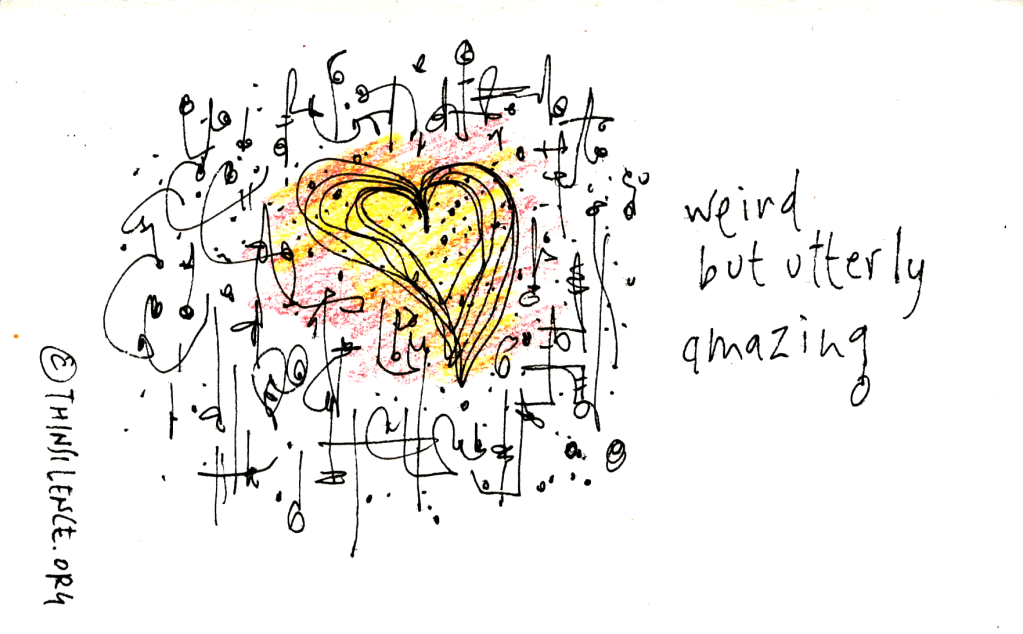 weird
but utterly
amazing
© THINSILENCE.ORG